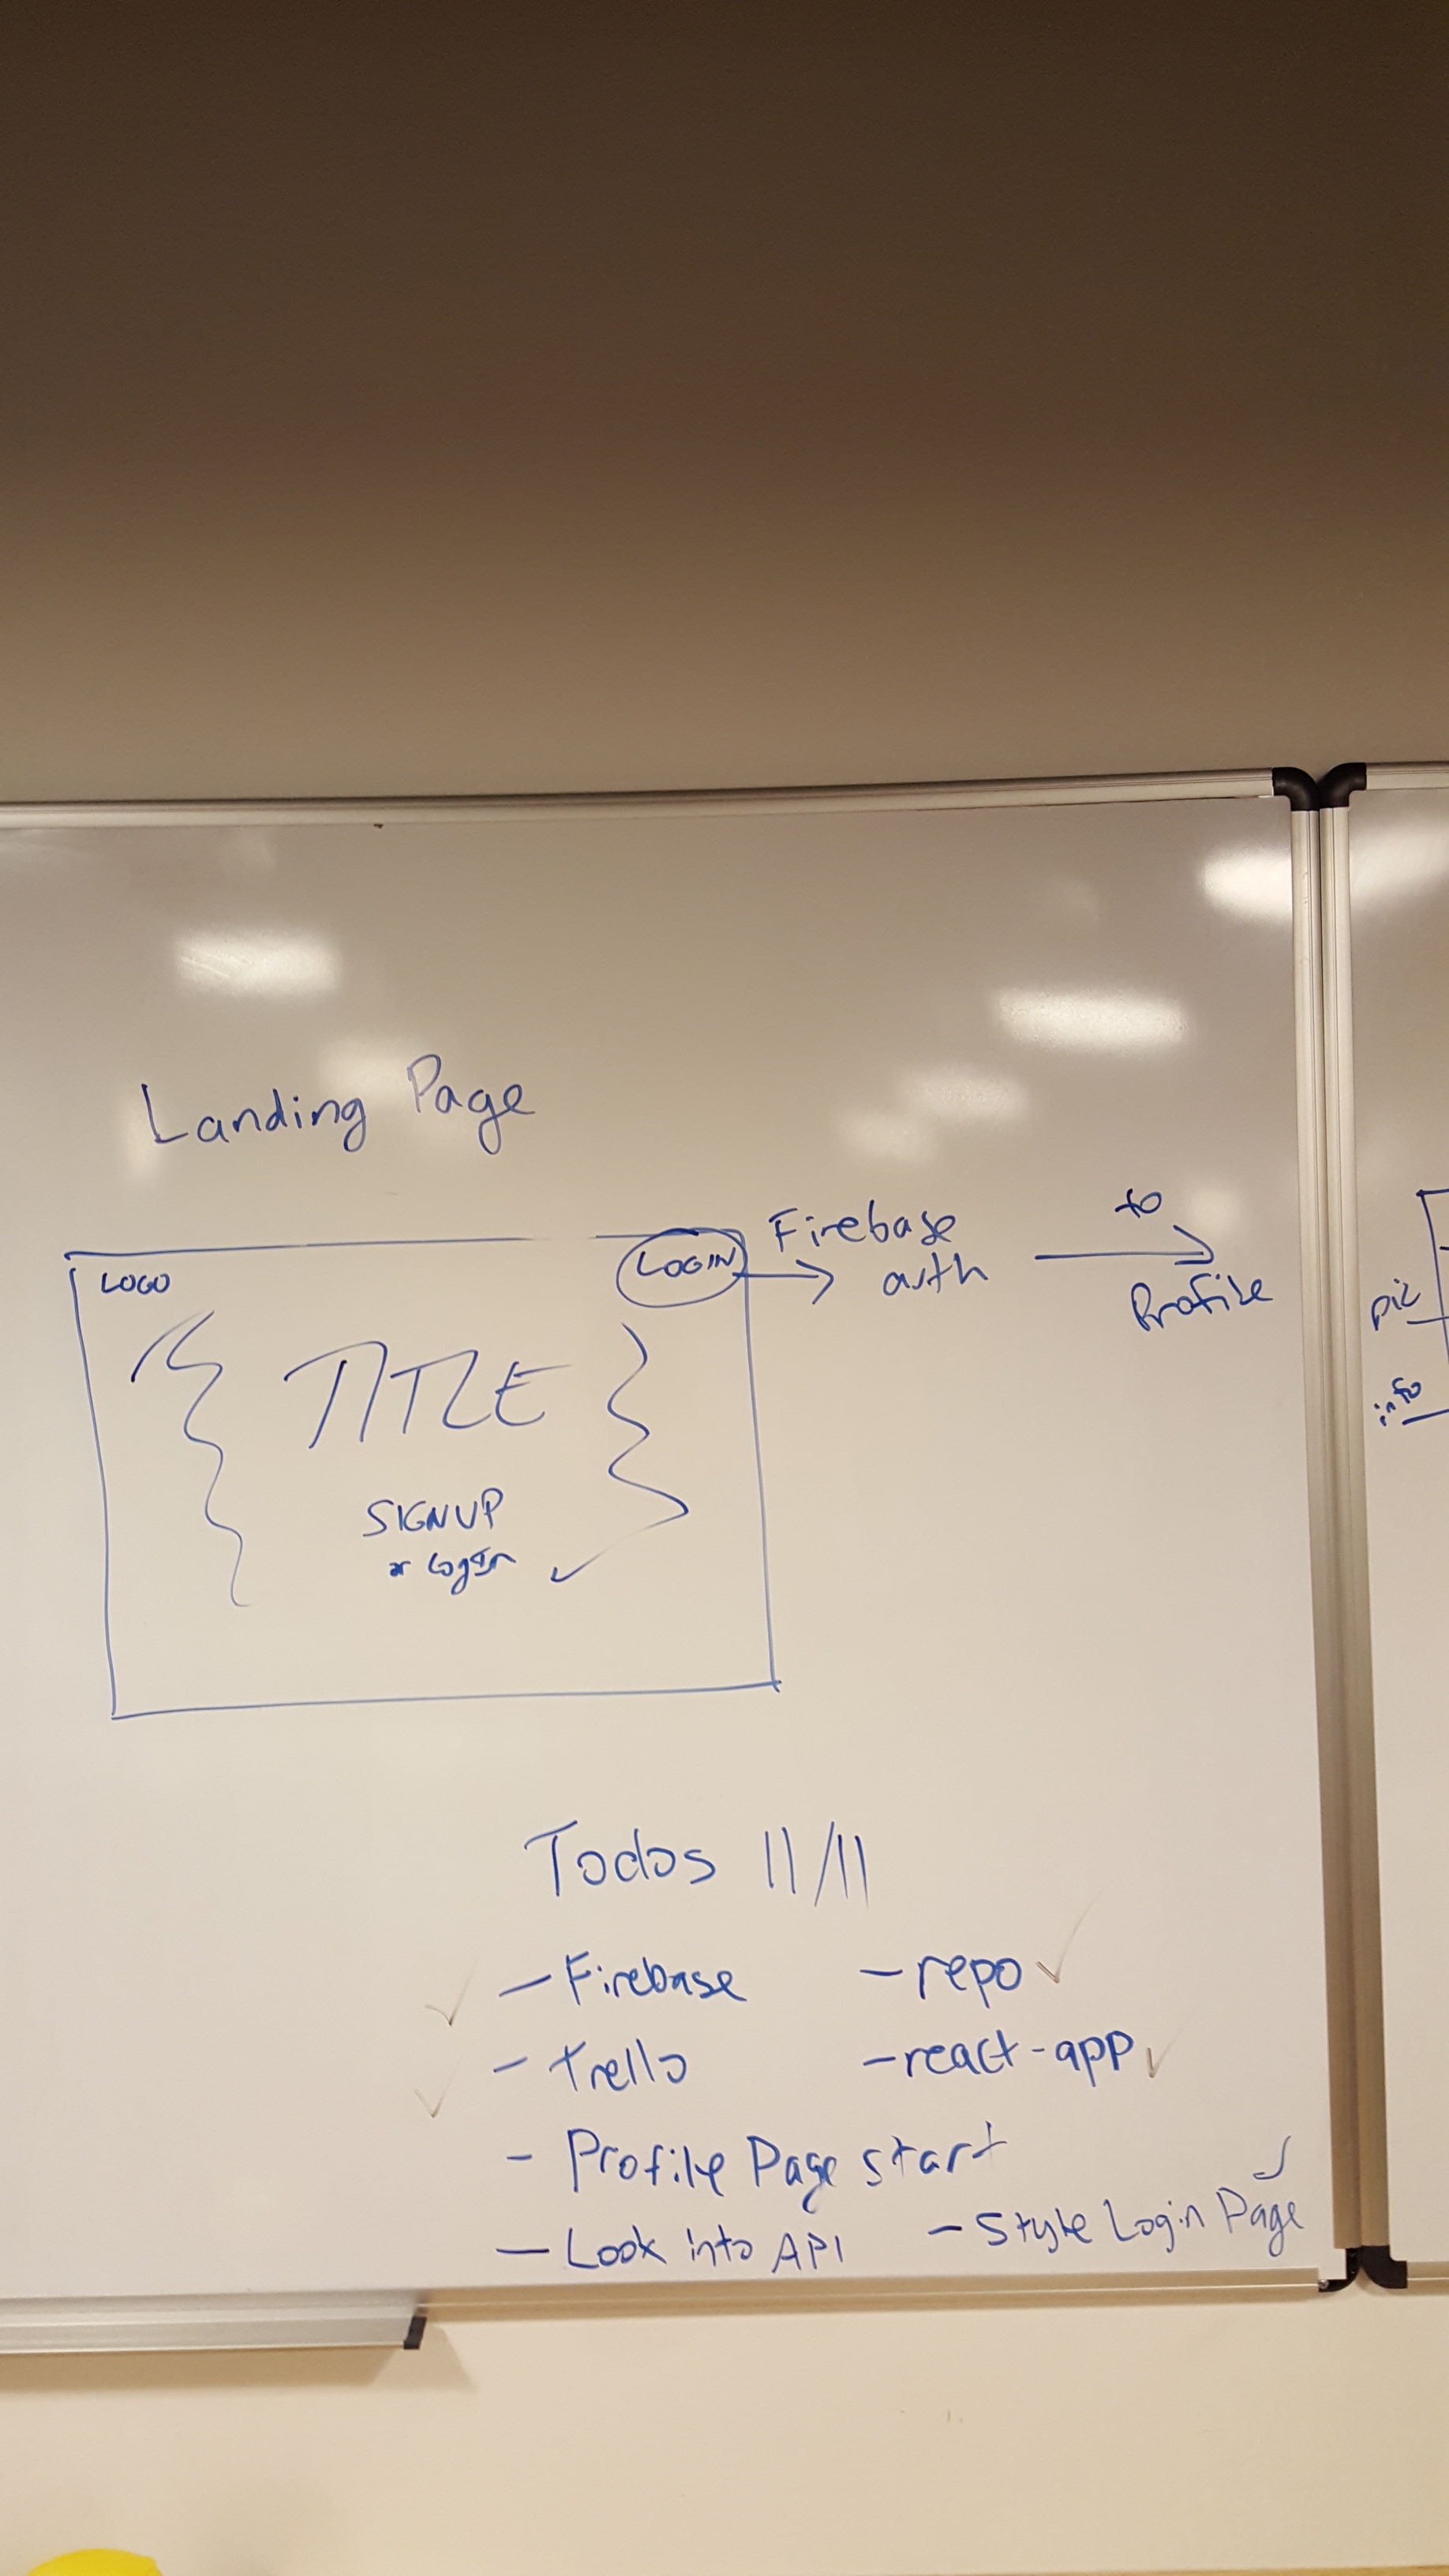 Landing Page
LOGO
LOGIN
Firebase
auth
to
Profile
TITLE
SIGNUP
or login
pic
info
Todos 11/11
- Firebase
- repo
- Trello
- react-app
- Profile Page start
- Look into API
- Style Login Page